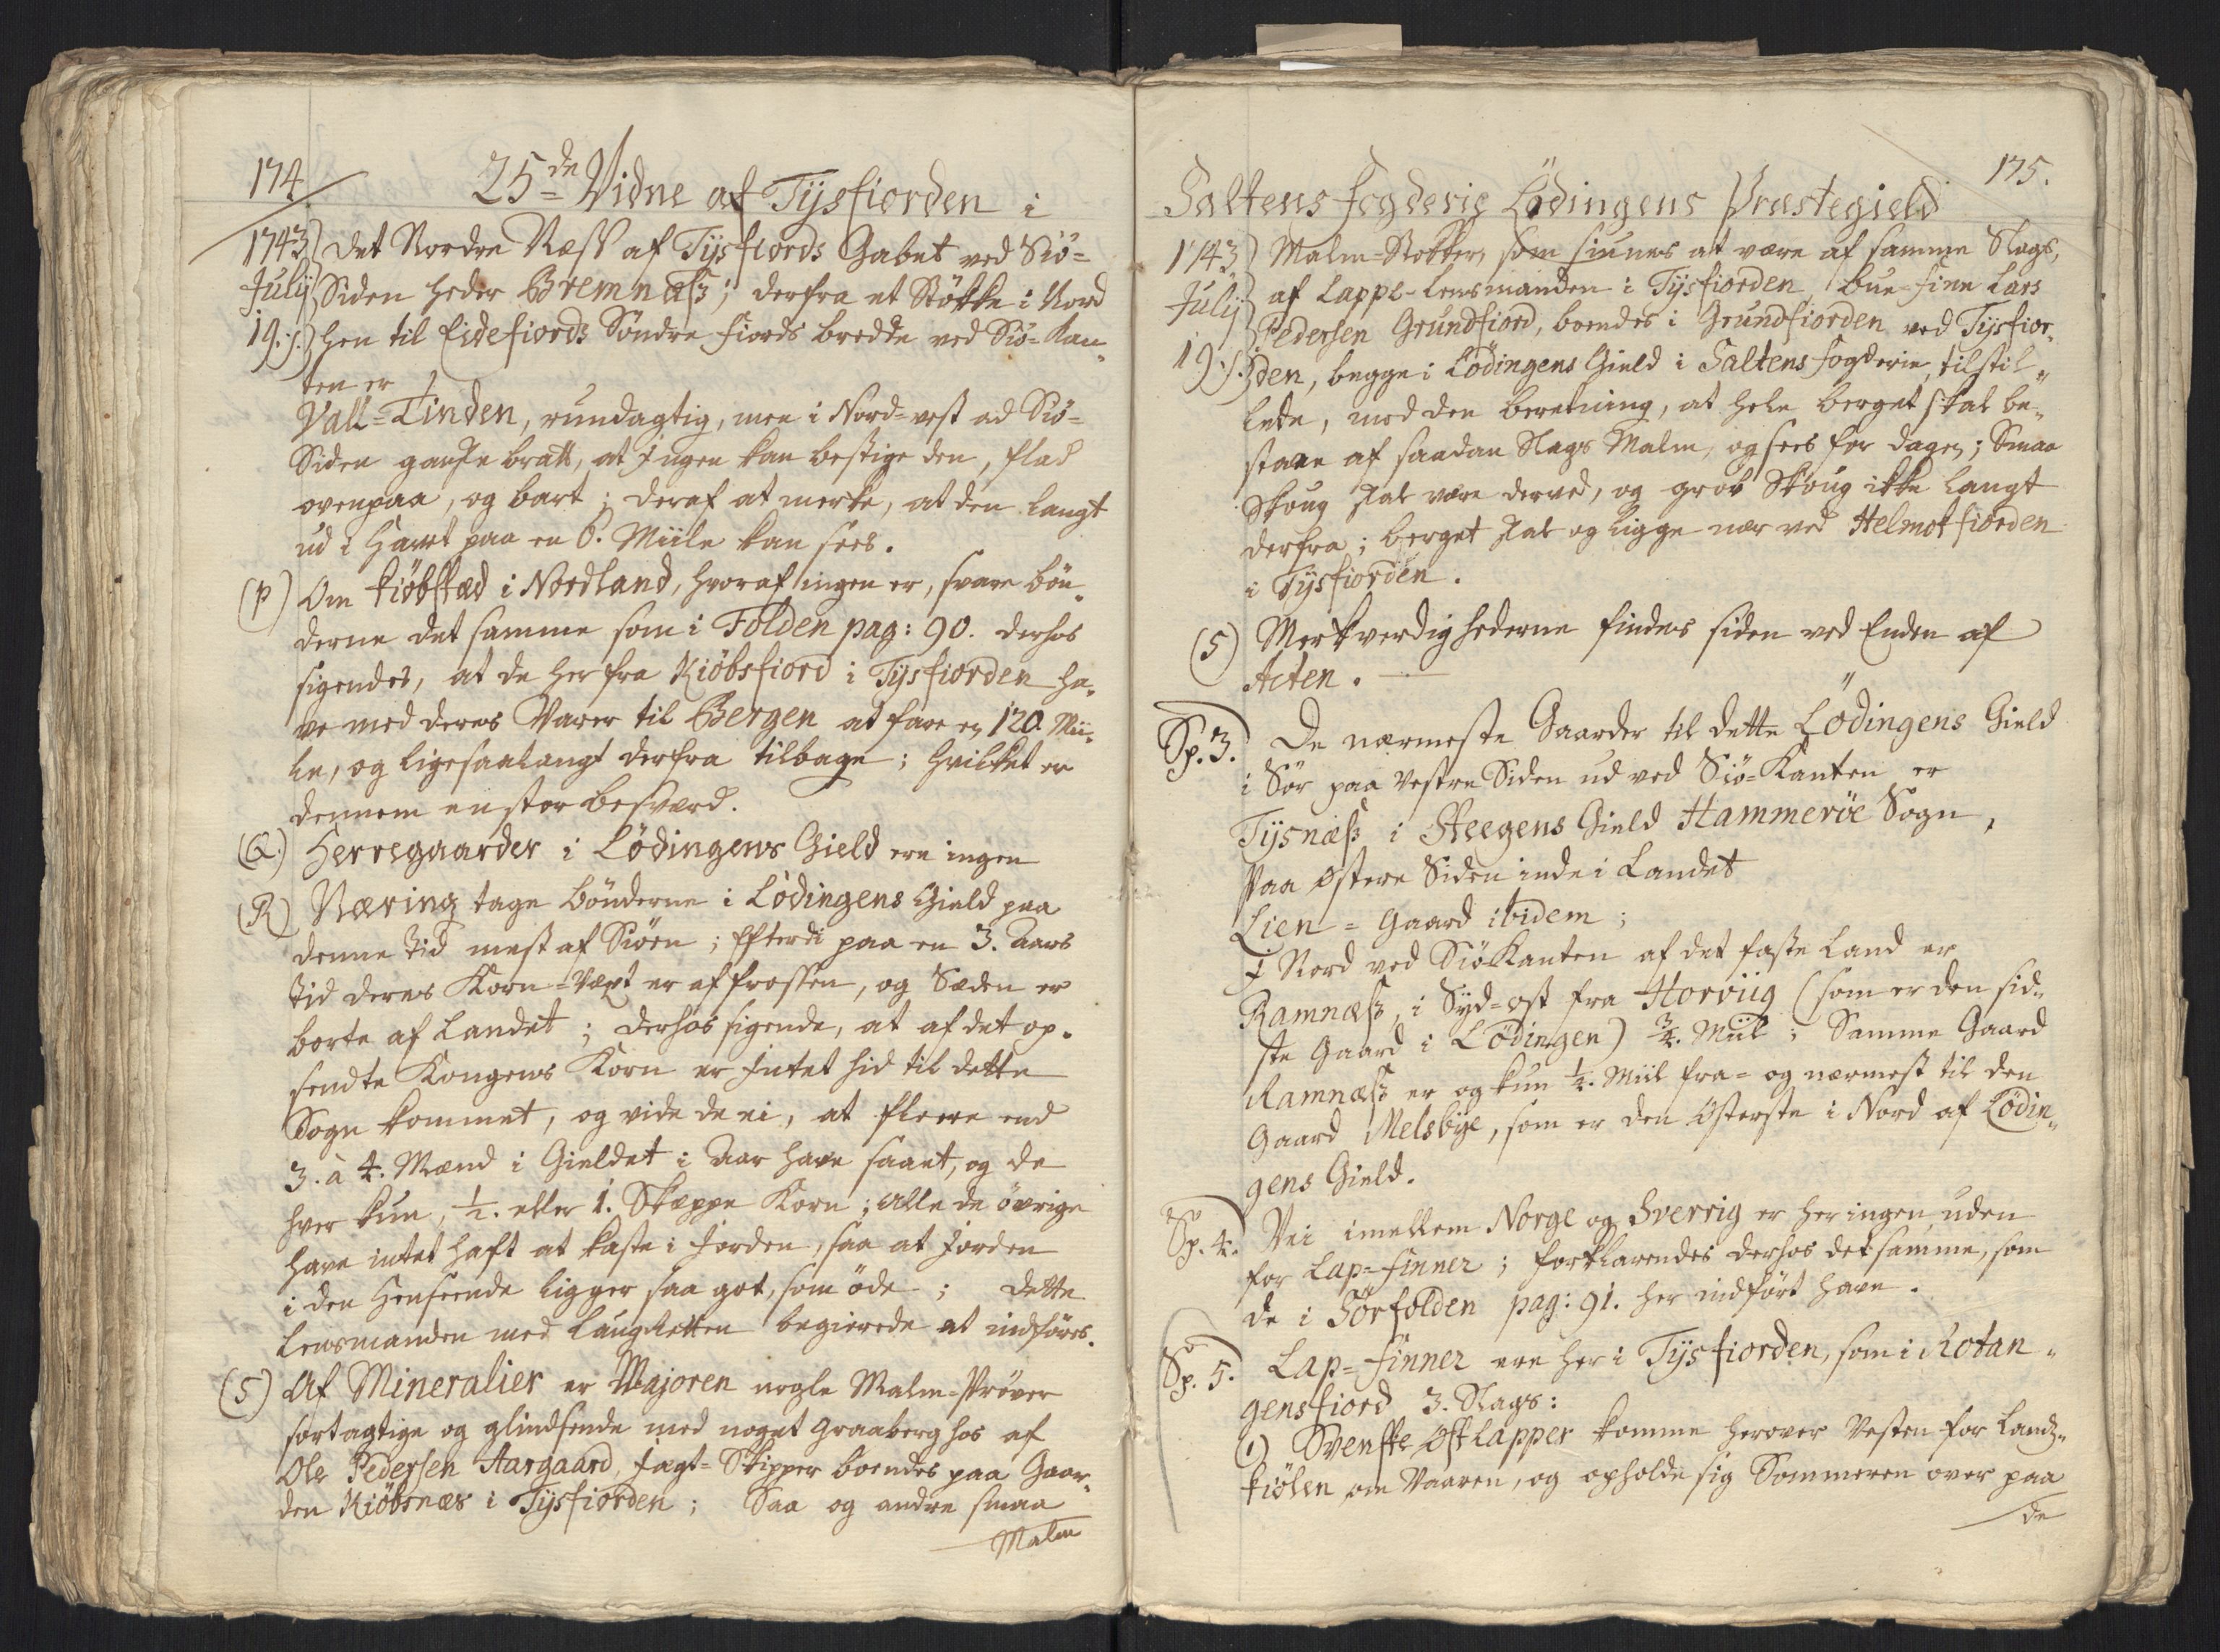 174.
25de Vidne af Tÿsfiorden i
1743 Det Nordre Næss af Tÿsfiords Gabet ved Siö-
Julÿ Siden heder Bremnæss; derfra et Stökke i Nord
19. s. hen til Eidefiords Söndre fiords bredde ved Siö-Kan-
ten er
Vall-Tinden, rundagtig, men i Nord-vest ad Siö-
Siden ganske bratt, at Ingen kan bestige den, flad
ovenpaa, og bart; deraf at merke, at den langt
ud i Havet paa en 6. Miile kan sees.
(P) Om Kiöbstæd i Nordland, hvoraf ingen er, svare bön-
derne det samme som i Folden pag: 90. derhos
sigendes, at de her fra Kiöbsfiord i Tÿsfiorden ha-
ve med deres Varer til Bergen at fare en 120 Mii-
le, og ligesaalangt derfra tilbage; hvilket er
dennem en stor besværd.
(Q.) Herregaarder i Lödingens Gield ere ingen
(R) Næring tage bönderne i Lödingens Gield paa
denne tid mest af Siöen; efterdi paa en 3. aars
tid deres Korn-Vext er affrossen, og Sæden er
borte af Landet; derhos sigende, at af det op-
sendte Kongens Korn er Intet hid til dette
Sogn kommet, og vide de ei, at fleere end
3. à 4. Mænd i Gieldet i Aar have saaet, og de
hver kun, ½. eller 1. Skæppe Korn; alle de övrige
have intet haft at kaste i Jorden, saa at Jorden
i den Henseende ligger saa got, som öde; dette
Lensmanden med Laugretten begierede at indföres.
(S) Af Mineralier er Majoren nogle Malm-Pröver
sortagtige og glindsende med noget graaberg hos af
Ole Pedersen Aargaard, Jagt-Skipper boendes paa Gaar-
den Kiöbsnæs i Tÿsfiorden; Saa og andre smaa
Malm
175.
Saltens fogderie Lödingens Præstegield
1743 Malm-Stokker, som siunes at være af samme Slags,
Julÿ af Lappe-Lensmanden i Tÿsfiorden, bue-finn Lars
Pedersen Grundfiord, boendes i Grundfiorden ved Tÿsfior-
19. s. den, begge i Lödingens Gield i Saltens fogderie, tilstil-
lede, med den beretning, at hele berget skal be-
staae af saadan Slags Malm, og sees for dagen; Smaa
Skoug skal være derved, og grov Skoug ikke langt
derfra; berget skal og ligge nær ved Helmotfiorden
i Tÿsfiorden.
(S) Merkverdighederne findes siden ved Enden af
Acten.
Sp. 3. De nærmeste Gaarder til dette Lödingens Gield
i Sör paa Vestre Siden ud ved Siö-Kanten er
Tÿsnæss i Steegens Gield Hammeröe Sogn,
Paa Östere Siden inde i Landet
Lien-Gaard ibidem;
I Nord ved Siö Kanten af det faste Land er
Ramnæss, i Syd-ost fra Horviig (som er den sid-
ste Gaard i Lödingen) ¾. Miil; Samme Gaard
Ramnæss er og kun ½. Miil fra- og nærmest til den
Gaard Melsbÿe, som er den Österste i Nord af Lödin-
gens Gield.
Sp. 4. Vei imellem Norge og Sverrig er her ingen uden
for Lap-finner; forklarendes derhos det samme, som
de i Sörfolden pag: 91. her indfört have.
Sp. 5. Lap-finner ere her i Tÿsfiorden, som i Rotan-
gensfiord 3. Slags:
1) Svenske Öst lapper komme herover Vesten for Land-
Kiölen om Vaaren, og opholde sig Sommeren over paa
de